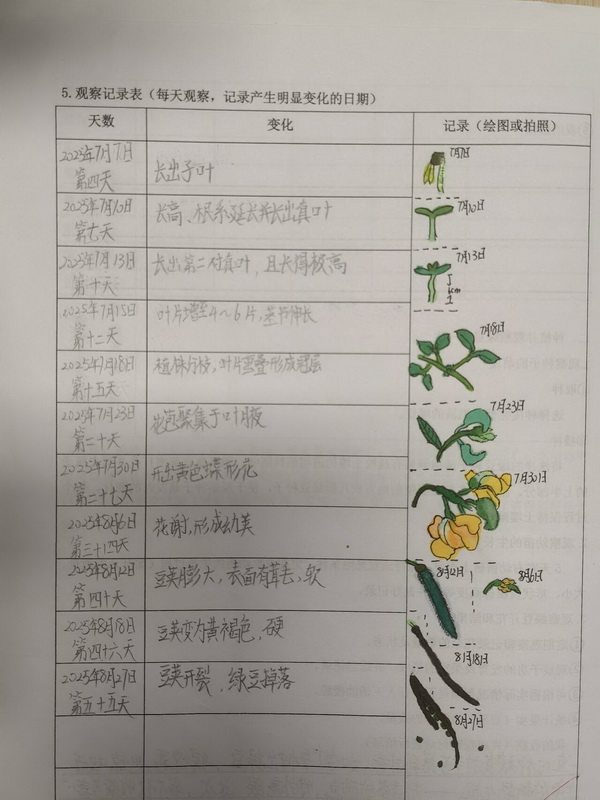 5. 观察记录表（每天观察，记录产生明显变化的日期）
天数 变化 记录（绘图或拍照）
2025年7月7日
第四天
长出子叶
7月7日
2025年7月10日
第七天
长高、根系延长并长出真叶
7月10日
2025年7月13日
第十天
长出第二对真叶，且长得极高
7月13日
2025年7月15日
第十二天
叶片增至4～6片，茎节伸长
2025年7月18日
第十五天
植株分枝，叶片重叠形成冠层
7月18日
2025年7月23日
第二十天
花苞聚集于叶腋
7月23日
2025年7月30日
第二十七天
开出黄色蝶形花
7月30日
2025年8月6日
第三十四天
花谢，形成幼荚
8月6日
2025年8月12日
第四十天
豆荚膨大，表面有茸毛，软
8月12日
2025年8月18日
第四十六天
豆荚变为黄褐色，硬
8月18日
2025年8月27日
第五十五天
豆荚开裂，绿豆掉落
8月27日